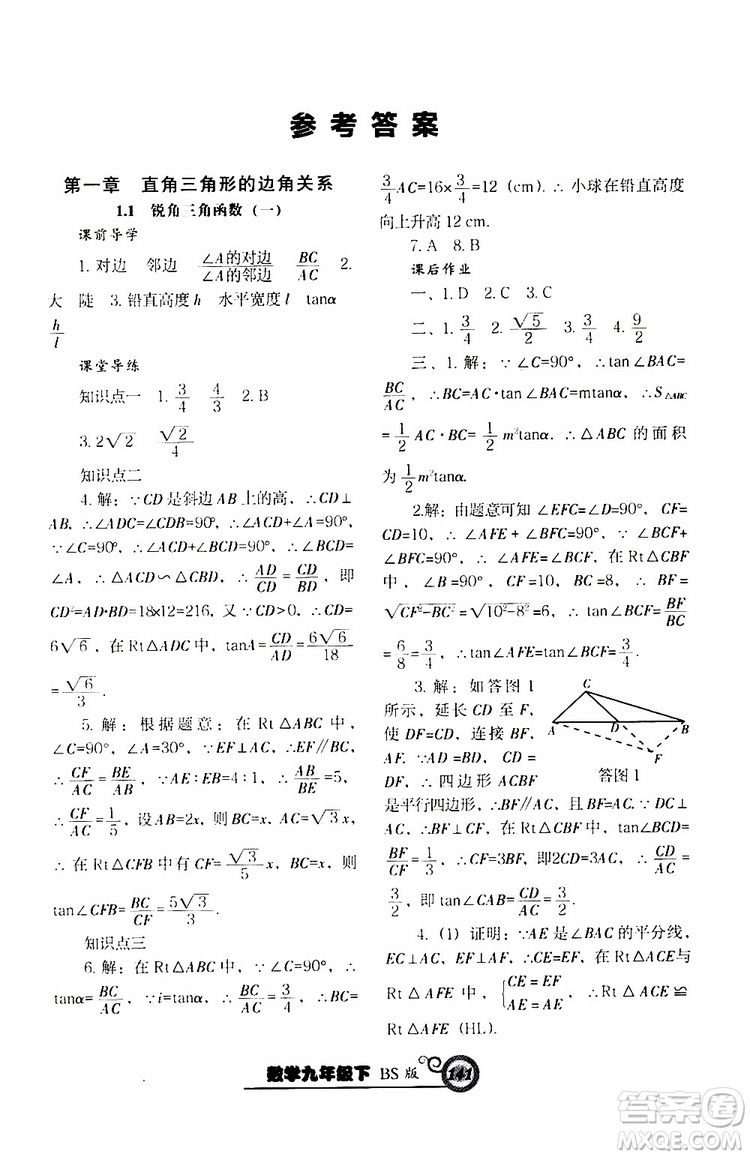 参考答案
第一章 直角三角形的边角关系
1.1 锐角三角函数(一)
课前导学
1. 对边 邻边 ∠A的对边/∠A的邻边 BC/AC 2.
大 陡 3. 铅直高度h 水平宽度l tanα
h/l
课堂导练
知识点一 1. 3/4 4/3 2. B
3. 2√2 √2/4
知识点二
4. 解：∵CD是斜边AB上的高，∴CD⊥
AB，∴∠ADC=∠CDB=90°，∴∠ACD+∠A=90°，
∵∠C=90°，∴∠ACD+∠BCD=90°，∴∠BCD=
∠A，∴△ACD∽△CBD，∴AD/CD=CD/BD，即
CD²=AD·BD=18×12=216，又∵CD>0，∴CD=
6√6，在Rt△ADC中，tanA=CD/AD=6√6/18
=√6/3.
5. 解：根据题意：在Rt△ABC中，
∠C=90°，∠A=30°，∵EF⊥AC，∴EF∥BC，
∴CF/AC=BE/AB，∵AE:EB=4:1，∴AB/BE=5，
∴CF/AC=1/5，设AB=2x，则BC=x，AC=√3x，
∴在Rt△CFB中有CF=√3/5x，BC=x，则
tan∠CFB=BC/CF=5√3/3.
知识点三
6. 解：在Rt△ABC中，∵∠C=90°，∴
tanα=BC/AC，∵i=tanα，∴BC/AC=3/4，∴BC=
3/4AC=16×3/4=12（cm）. ∴小球在铅直高度
向上升高12 cm.
7. A 8. B
课后作业
一、1. D 2. C 3. C
二、1. 3/4 2. √5/2 3. 3/4 4. 9/2
三、1. 解：∵∠C=90°，tan∠BAC=
BC/AC，∴BC=AC·tan∠BAC=mtanα，∴S△ABC
=1/2AC·BC=1/2m²tanα. ∴△ABC的面积
为1/2m²tanα.
2.解：由题意可知∠EFC=90°，CF=
CD=10，∴∠AFE+∠BFC=90°，∵∠BCF+
∠BFC=90°，∴∠AFE=∠BCF，在Rt△CBF
中，∠B=90°，CF=10，BC=8，∴BF=
√CF²-BC²=√10²-8²=6，∴tan∠BCF=BF/BC
=6/8=3/4，∴tan∠AFE=tan∠BCF=3/4.
3. 解：如答图1
所示，延长CD至F，
使DF=CD，连接BF，
AF. ∵AD=BD，CD=
DF，∴四边形ACBF
C
A
D
B
F
答图1
是平行四边形，∴BF∥AC，∵DC⊥
AC，∴BF⊥CF，在Rt△BCF中，tan∠BCD=
BF/CF=1/3，∴CF=3BF，即2CD=3AC，∴CD/AC=
3/2，即tan∠CAB=CD/AC=3/2.
4.（1）证明：∵AE是∠BAC的平分线，
EC⊥AC，EF⊥AF，∴CE=EF，在Rt△ACE与
Rt△AFE中，{CE=EF AE=AE，∴Rt△ACE≌
Rt△AFE（HL）.
数学九年级下 BS版 141
答案圈
MXQE.COM